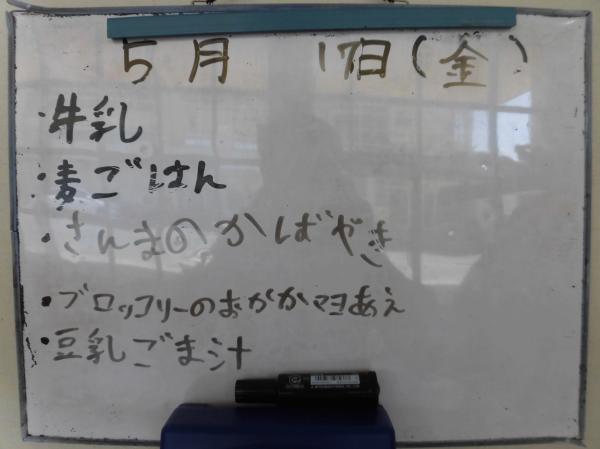 5月 17日(金)
・牛乳
・麦ごはん
・さんまのかばやき
・ブロッコリーのおかかマヨあえ
・豆乳ごま汁